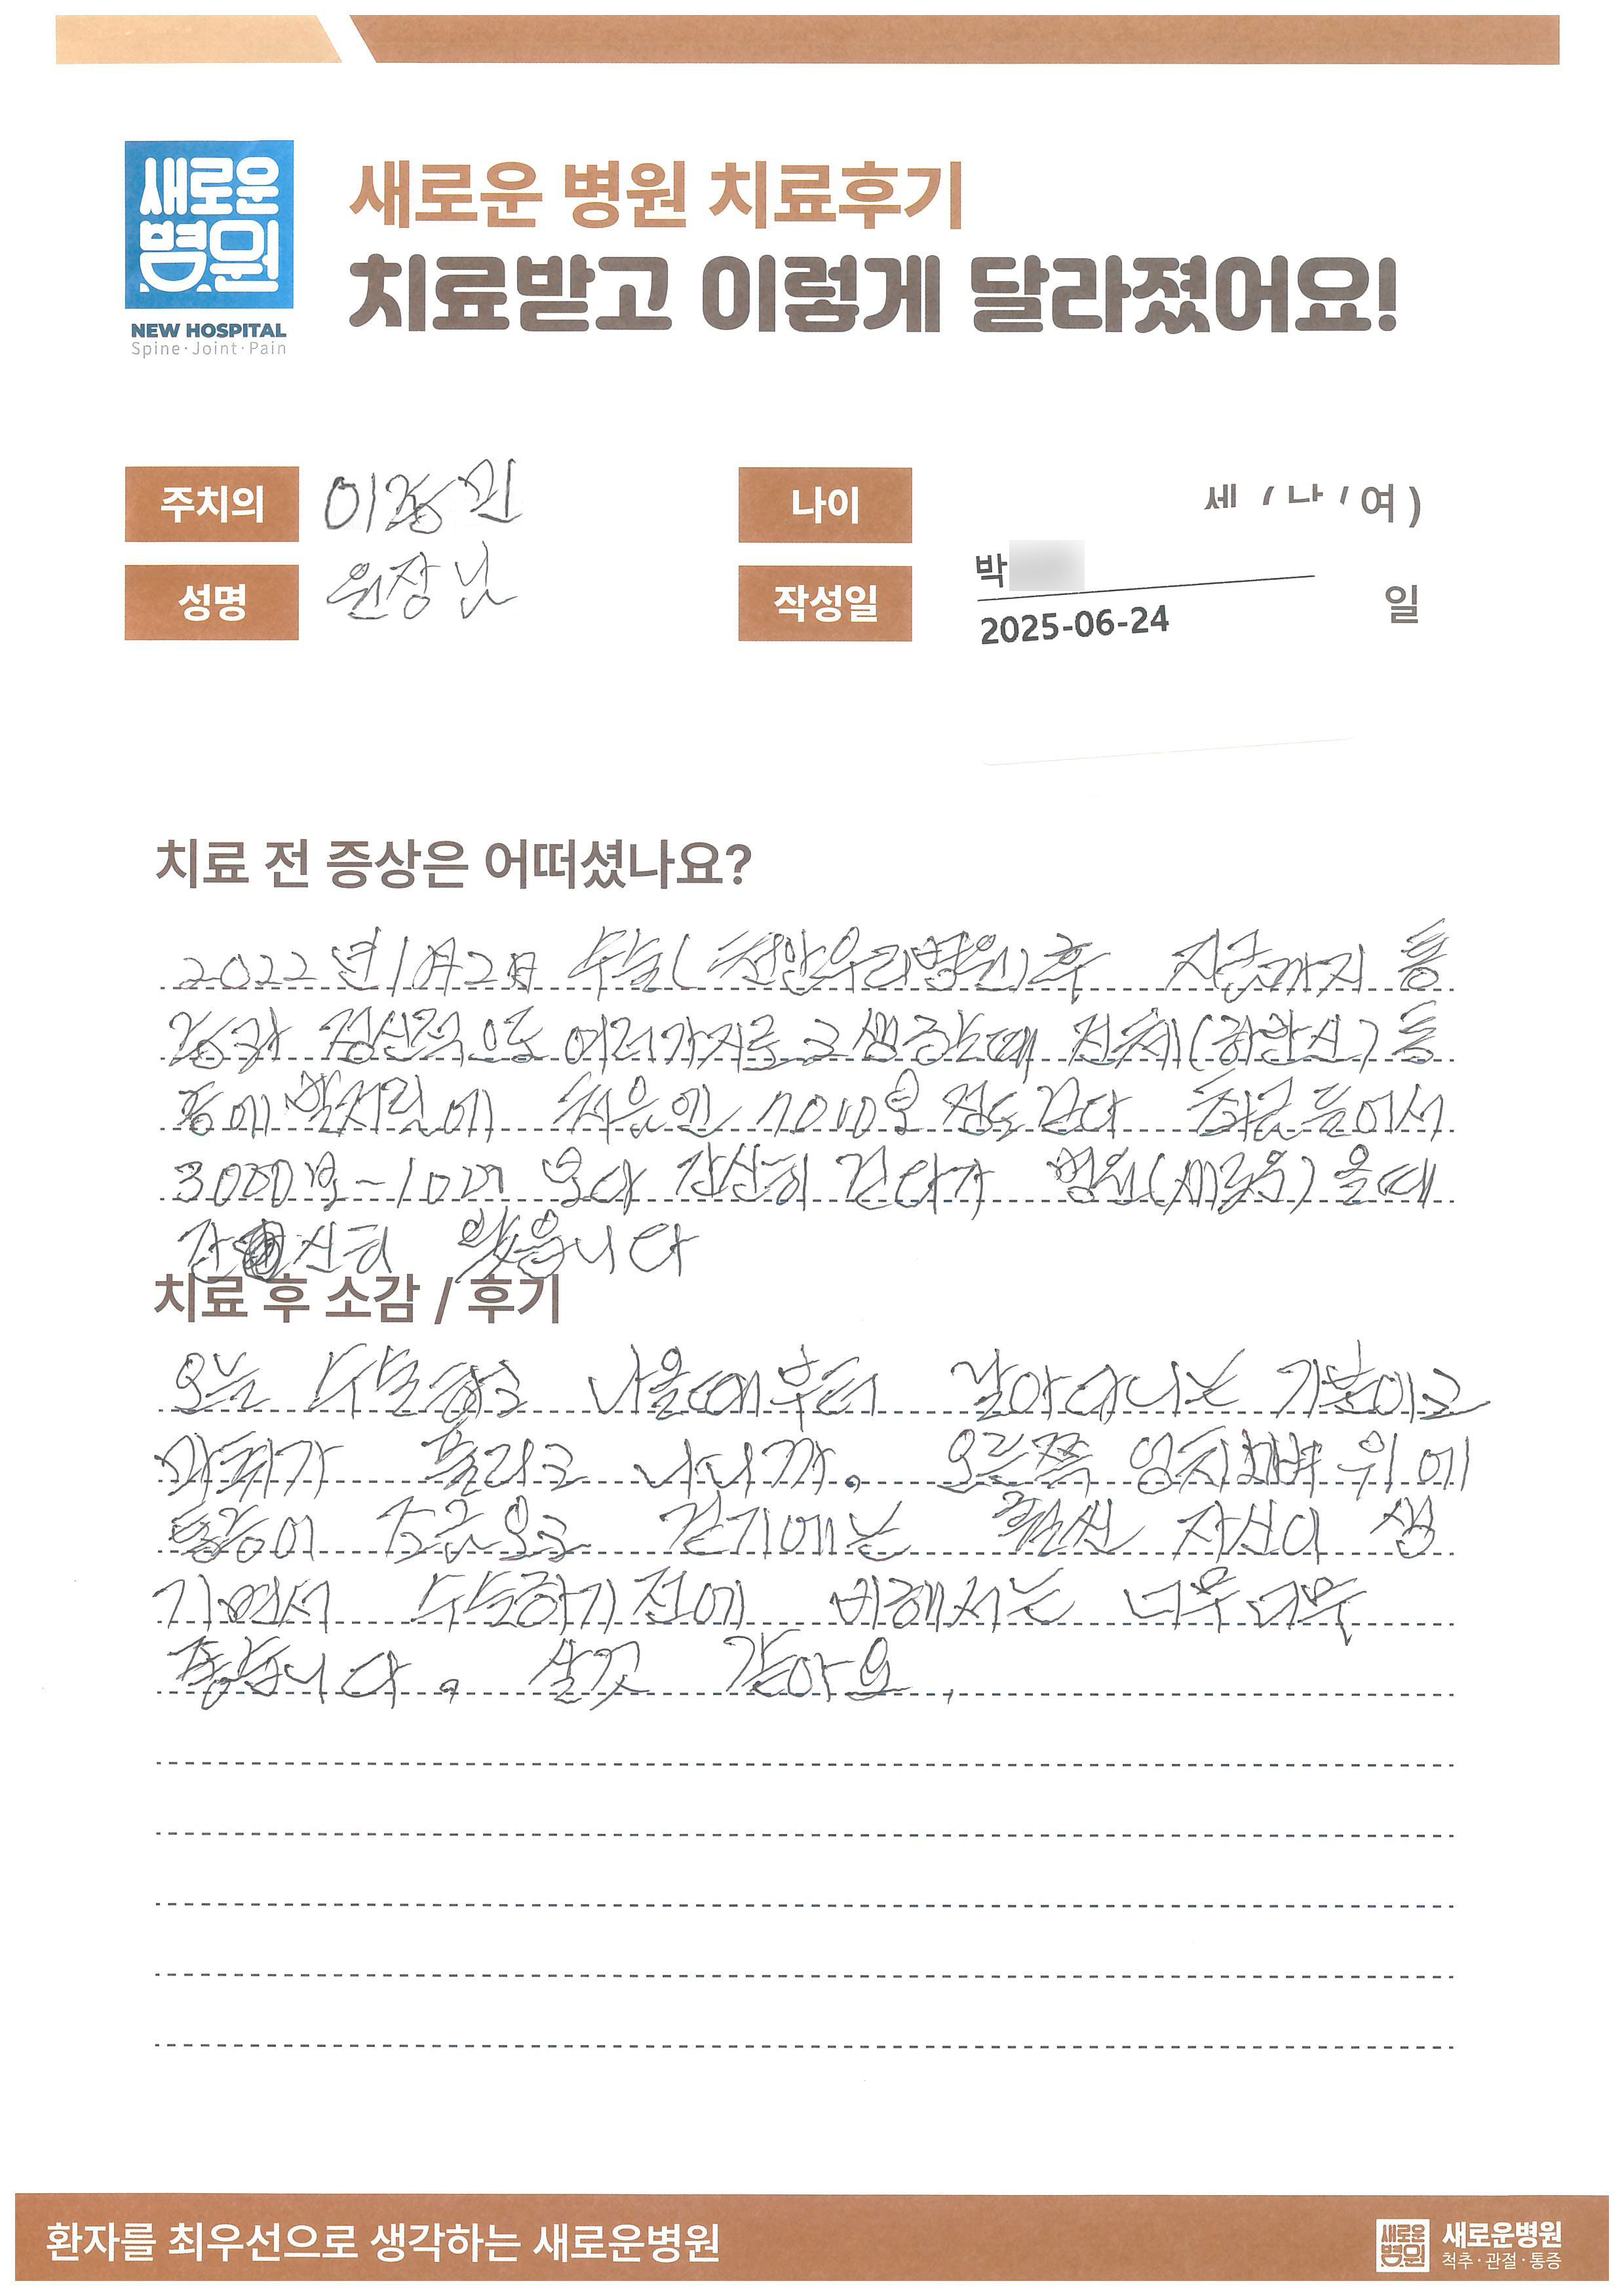 새로운
병원
NEW HOSPITAL
Spine·Joint·Pain
새로운 병원 치료후기
치료받고 이렇게 달라졌어요!
주치의 이동민
원장님
나이 세 ( 남 / 여 )
성명
작성일 박
2025-06-24 일
치료 전 증상은 어떠셨나요?
2022년 1月 2日 수술(천안우리병원)후 지금까지 통
증과 정신적으로 여러가지로 고생하는때 전체(하반신)통
증에 발저림에 처음엔 7000보 정도 걷다 최근 들어서
3000보~10 보다 간신히 걷다가 병원(새로운) 올때
간신히 왔습니다
치료 후 소감 / 후기
오늘 수술하고 나올때부터 날아다니는 기분이고
마취가 풀리고 나니까. 오른쪽 엉치 위에
통증이 조금오고 걷기에는 훨씬 자신이 생
기면서 수술하기 전에 비해서는 너무너무
좋습니다. 살것 같아요.
환자를 최우선으로 생각하는 새로운병원
새로운
병원
새로운병원
척추·관절·통증